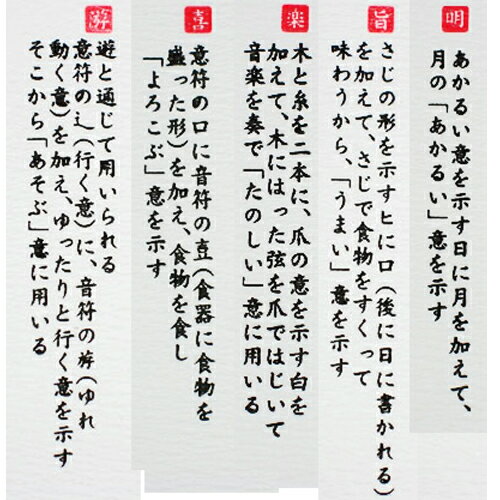 明
あかるい意を示す日に月を加えて、
月の「あかるい」意を示す
旨
さじの形を示すヒに口(後に日に書かれる)
を加えて、さじで食物をすくって
味わうから、「うまい」意を示す
楽
木と糸を二本に、爪の意を示す白を
加えて、木にはった弦を爪ではじいて
音楽を奏で「たのしい」意に用いる
喜
意符の口に音符の壴(食器に食物を
盛った形)を加え、食物を食し
「よろこぶ」意を示す
游
遊と通じて用いられる
意符の辶(行く意)に、音符の斿(ゆれ
動く意)を加え、ゆったりと行く意を示す
そこから「あそぶ」意に用いる